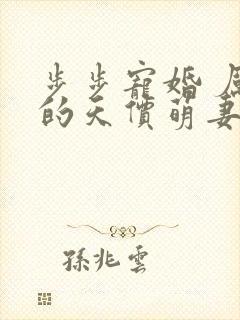 步步寵婚
的天價萌妻
孫兆雲